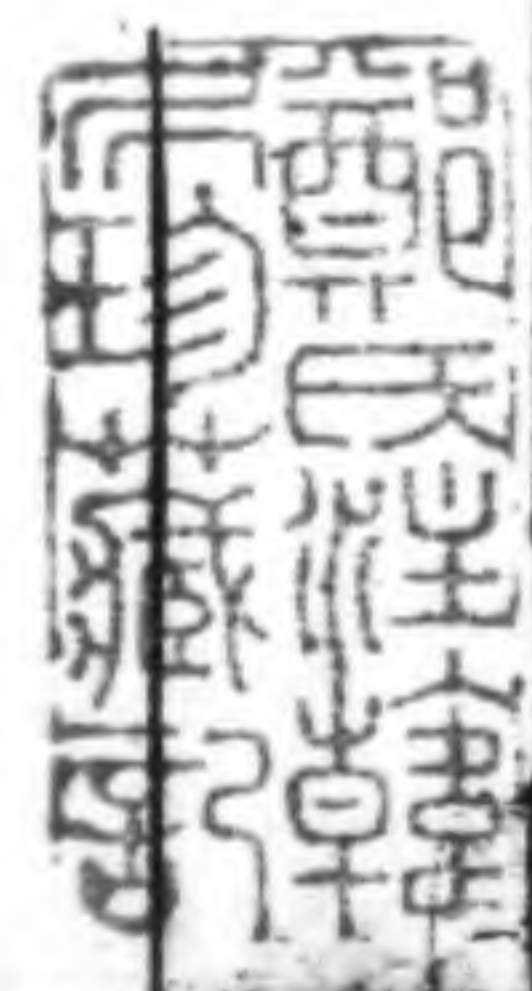 鄭氏注韓
居珍藏記